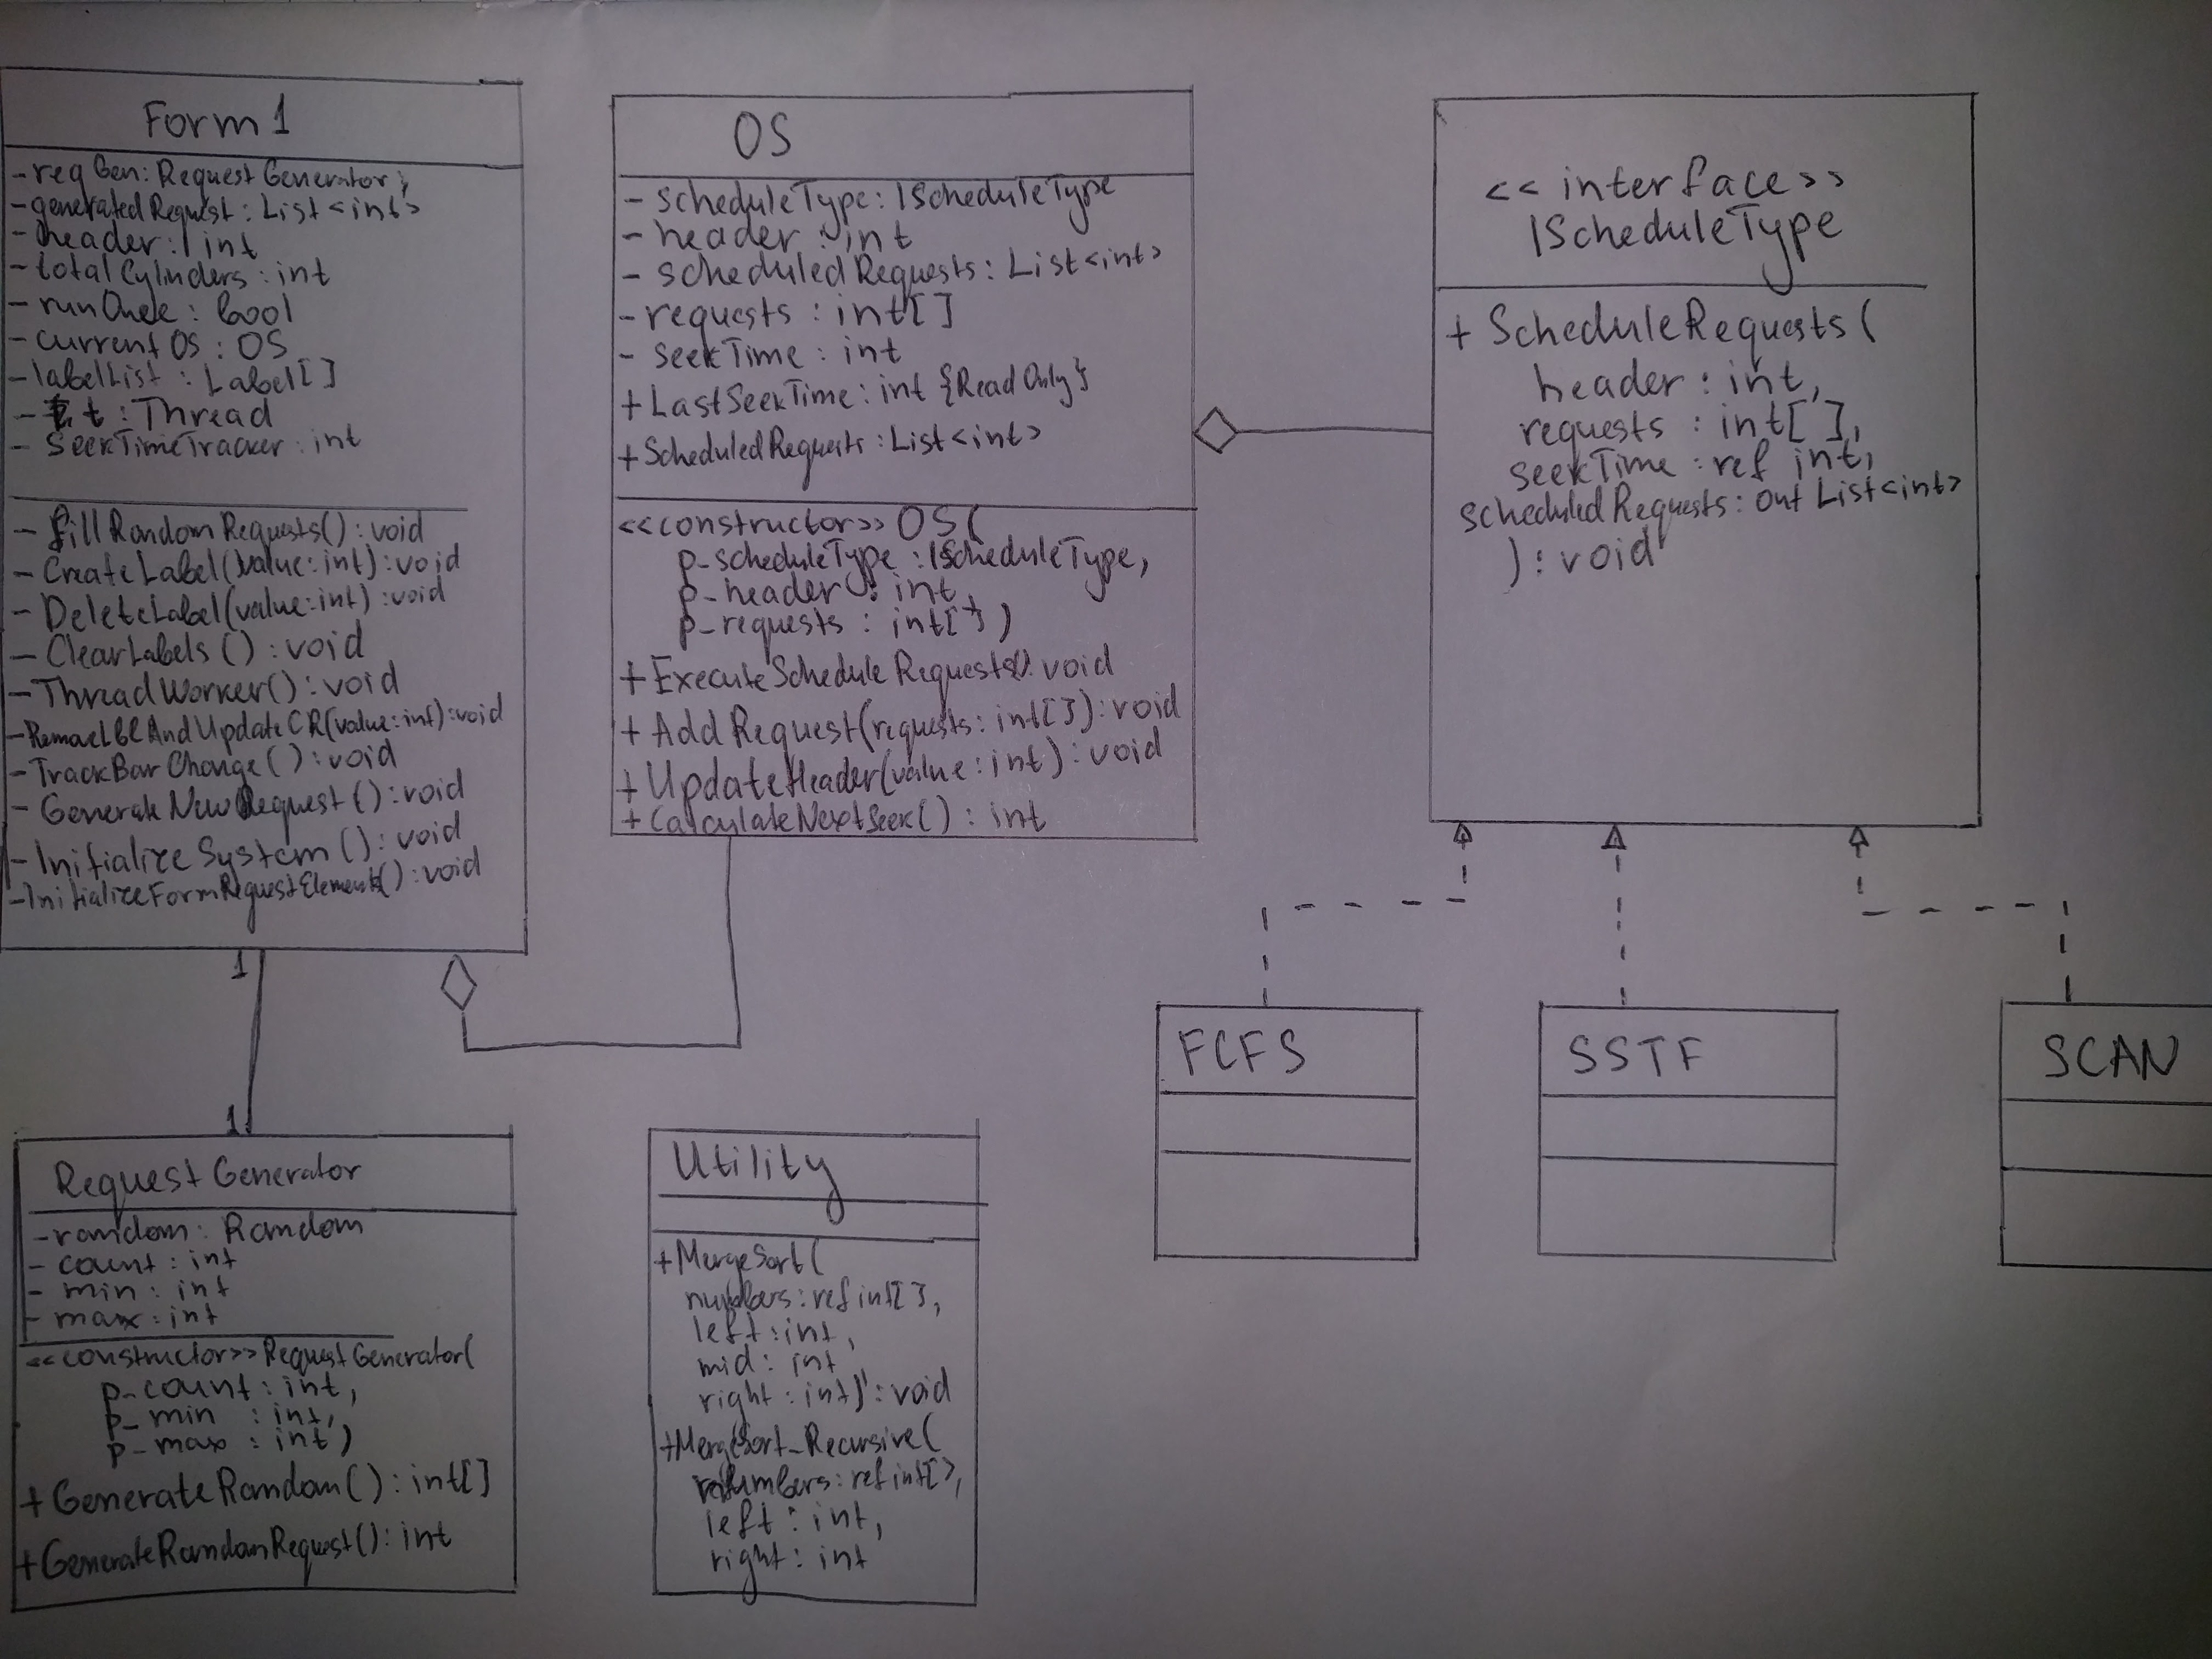 Form1
-reqGen: RequestGenerator;
-generatedRequest: List<int>
-header: int
-totalCylinders: int
-runOnce: bool
-currentOS: OS
-labelList: Label[]
- t: Thread
- SeekTimeTracker: int
- fillRandomRequests(): void
- CreateLabel(value: int): void
- DeleteLabel(value: int): void
- ClearLabels(): void
- ThreadWorker(): void
-RemoveLBLAndUpdateCR(value: int): void
-TrackBarChange(): void
- GenerateNewRequest(): void
- InitializeSystem(): void
-InitializeFormRequestElements(): void
OS
- scheduleType: IScheduleType
- header: int
- scheduledRequests: List<int>
- requests: int[]
- seekTime: int
+ LastSeekTime: int {ReadOnly}
+ ScheduledRequests: List<int>
<<constructor>> OS(
p_scheduleType: IScheduleType,
p_header: int,
p_requests: int[])
+ ExecuteScheduleRequests(): void
+ AddRequest(requests: int[]): void
+ UpdateHeader(value: int): void
+ CalculateNextSeek(): int
<< interface >>
IScheduleType
+ ScheduleRequests(
header: int,
requests: int[],
seekTime: ref int,
scheduledRequests: out List<int>
): void
1
1
FCFS
SSTF
SCAN
RequestGenerator
-random: Random
- count: int
- min: int
- max: int
<<constructor>> RequestGenerator(
p_count: int,
p_min: int,
p_max: int)
+ GenerateRandom(): int[]
+ GenerateRandomRequest(): int
Utility
+MergeSort(
numbers: ref int[],
left: int,
mid: int
right: int): void
+MergeSort_Recursive(
numbers: ref int[],
left: int,
right: int